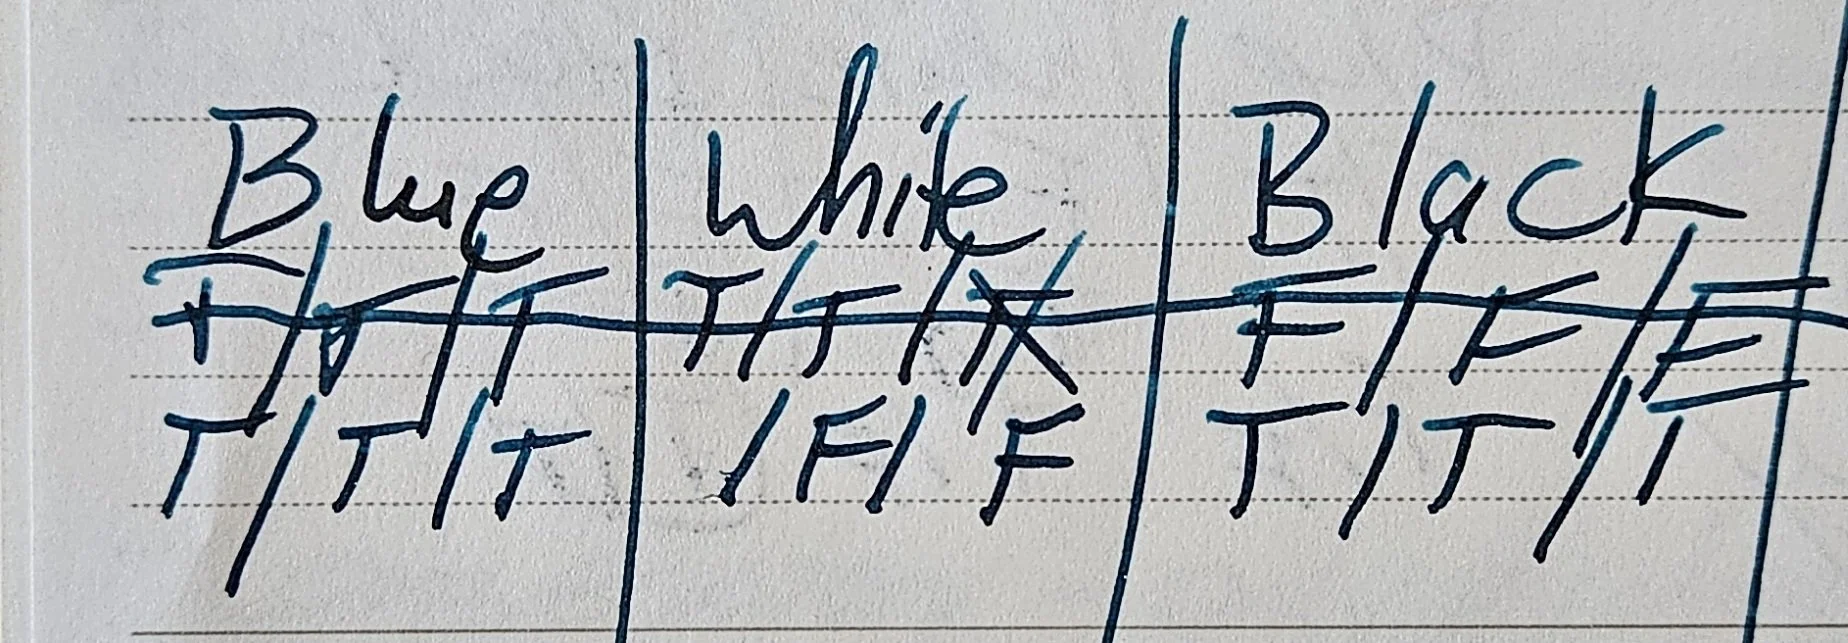 Blue White Black
T/T/T T/F/F F/F/F
T/T/T /F/F T/T/T